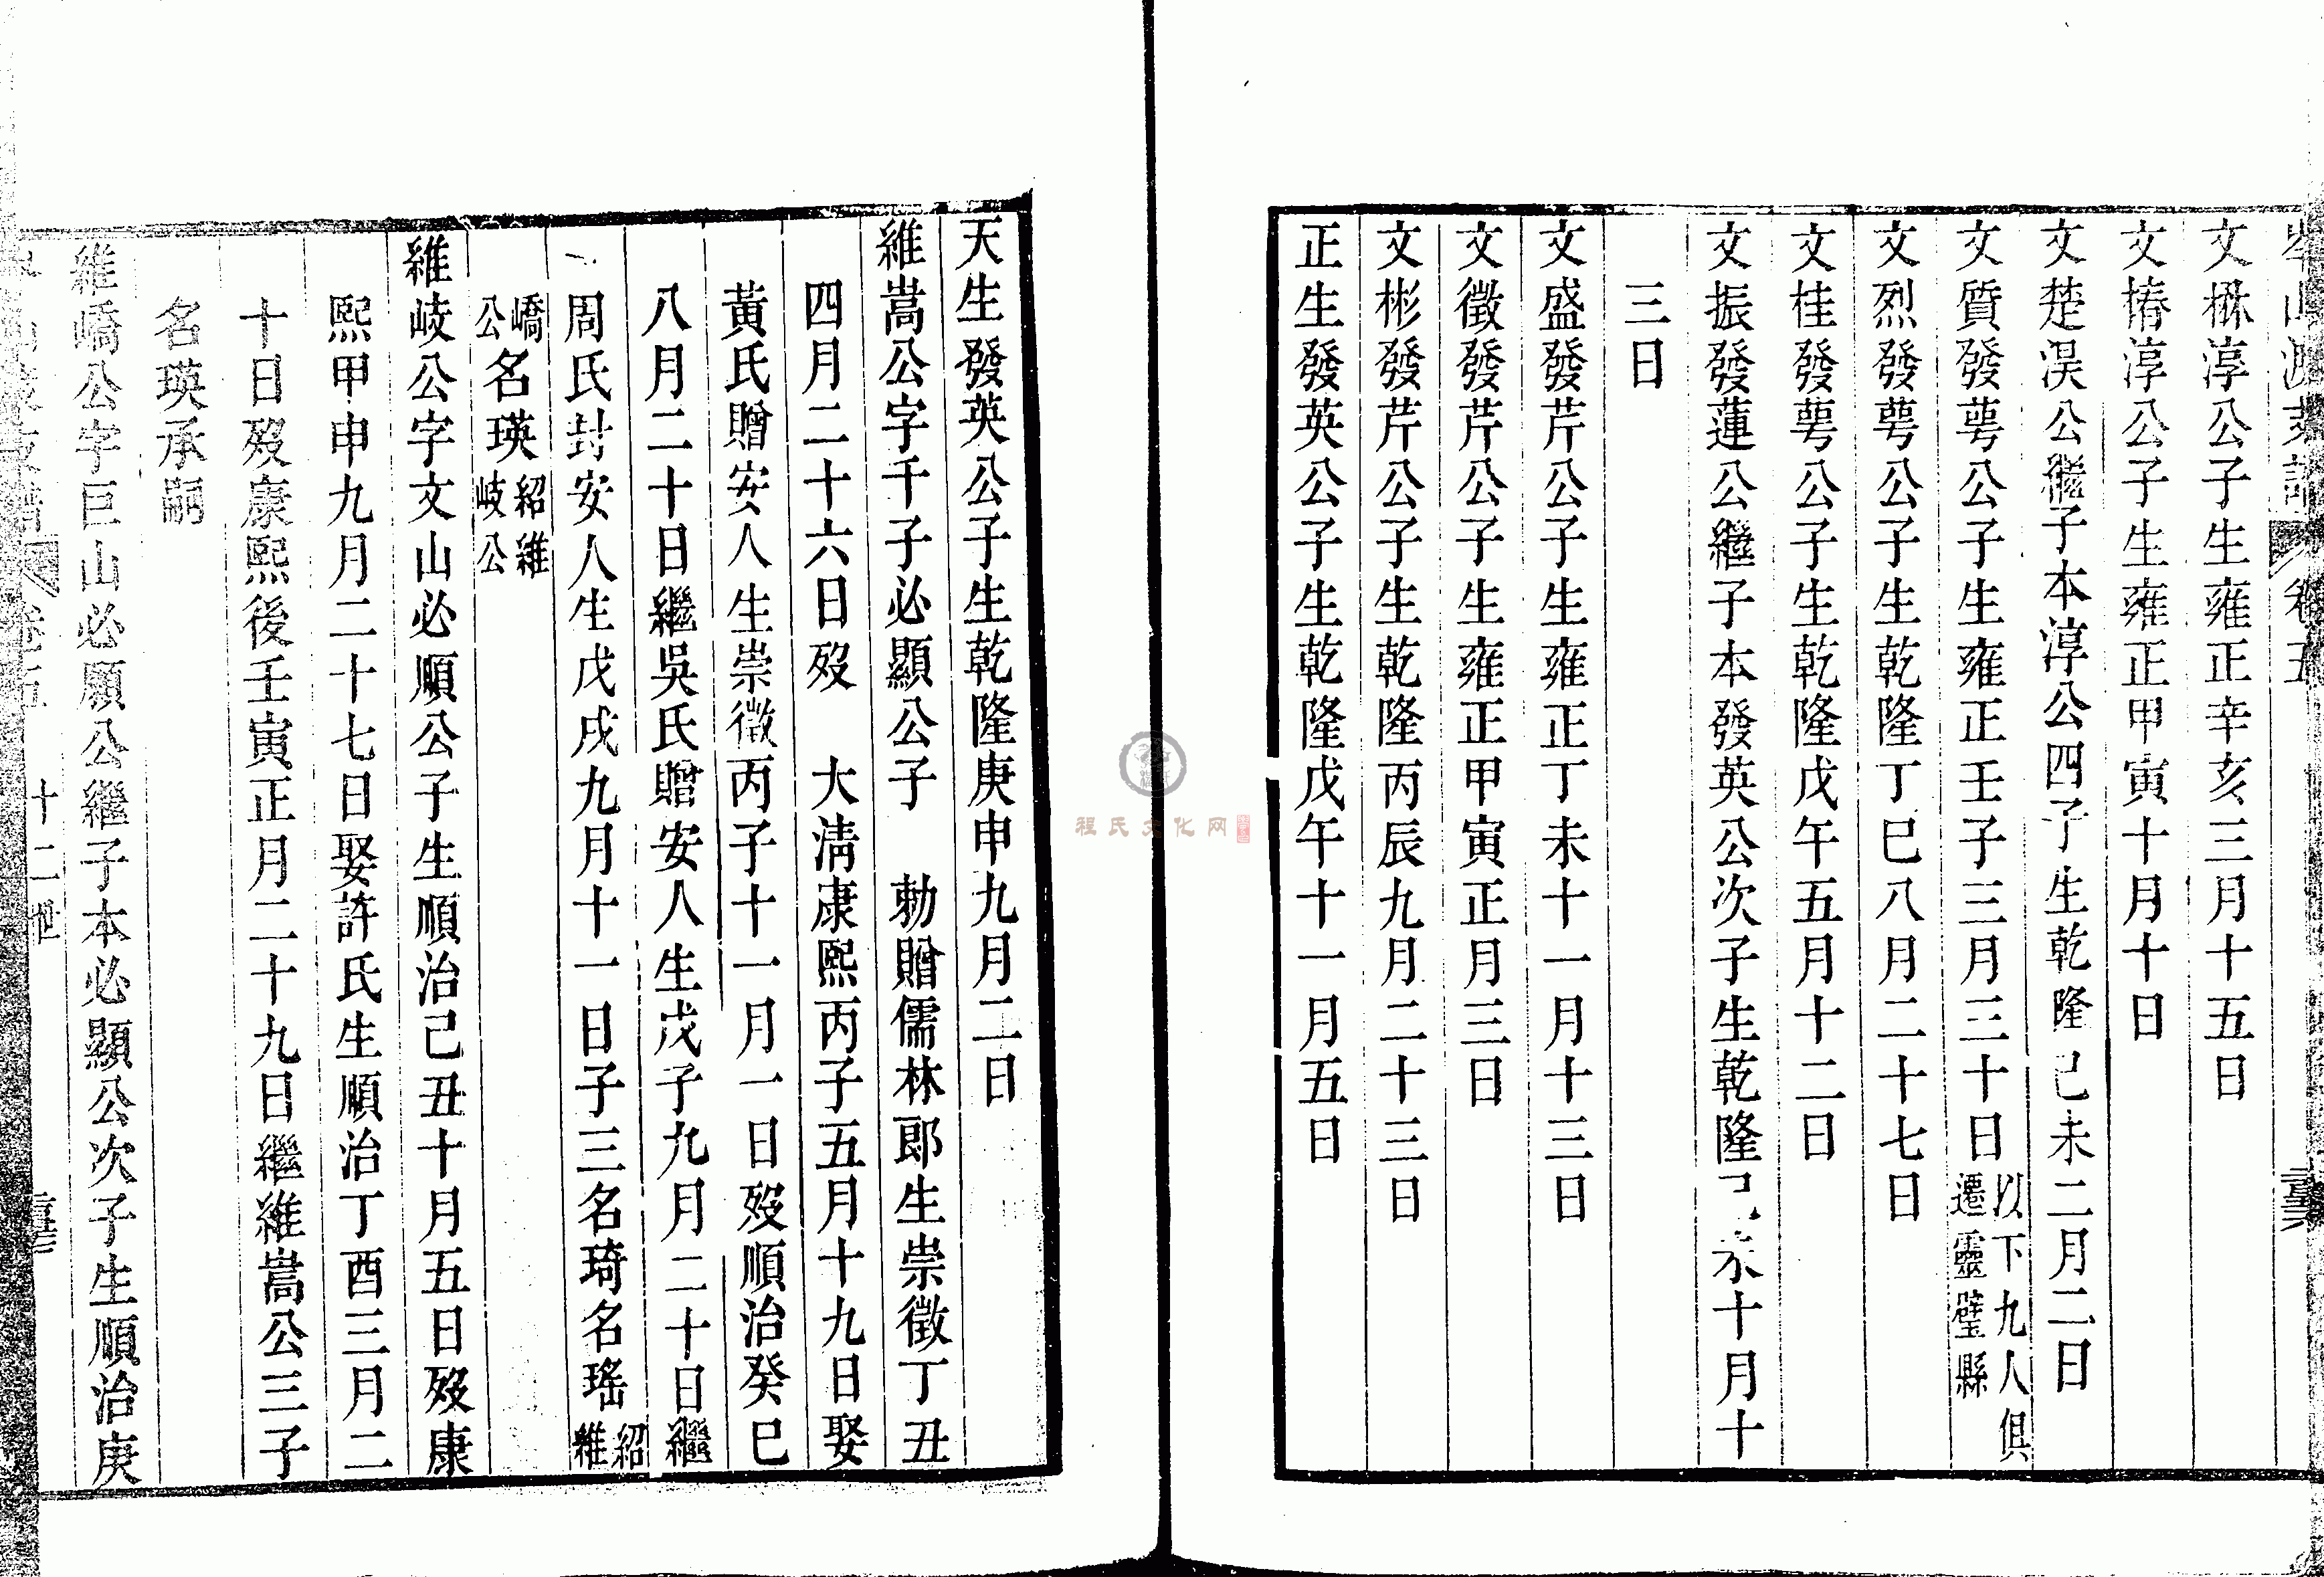 卷五
文楙淳公子生雍正辛亥三月十五日
文椿淳公子生雍正甲寅十月十日
文楚淏公繼子本淳公四子生乾隆己未二月二日
文質發萼公子生雍正壬子三月三十日以下九人俱遷靈璧縣
文烈發萼公子生乾隆丁巳八月二十七日
文桂發萼公子生乾隆戊午五月十二日
文振發蓮公繼子本發英公次子生乾隆未十月十
三日
文盛發芹公子生雍正丁未十一月十三日
文徵發芹公子生雍正甲寅正月三日
文彬發芹公子生乾隆丙辰九月二十三日
正生發英公子生乾隆戊午十一月五日
天生發英公子生乾隆庚申九月二日
維嵩公字千子必顯公子　勅贈儒林郎生崇徵丁丑
四月二十六日歿　大淸康熙丙子五月十九日娶
黃氏贈安人生崇徵丙子十一月一日歿順治癸巳
八月二十日繼吳氏贈安人生戊子九月二十日繼
周氏封安人生戊戌九月十一日子三名琦名瑤紹維
嶠公名瑛紹維岐公
維岐公字文山必順公子生順治己丑十月五日歿康
熙甲申九月二十七日娶許氏生順治丁酉三月二
十日歿康熙後壬寅正月二十九日繼維嵩公三子
名瑛承嗣
維嶠公字巨山必願公繼子本必顯公次子生順治庚
卷五　十二世
程氏文化网